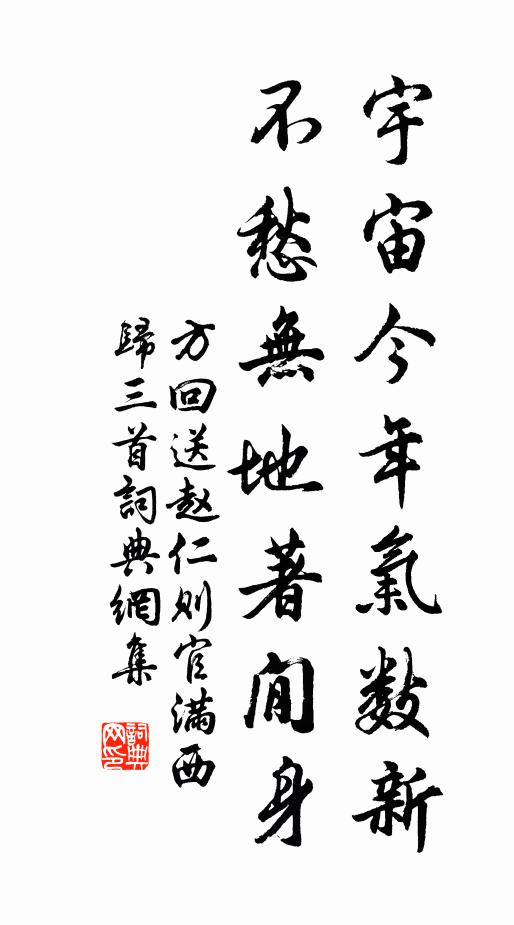 宇宙今年氣数新
不愁無地著閒身
方回送赵仁则官滿西
歸三首詞典網集
詞典
网印